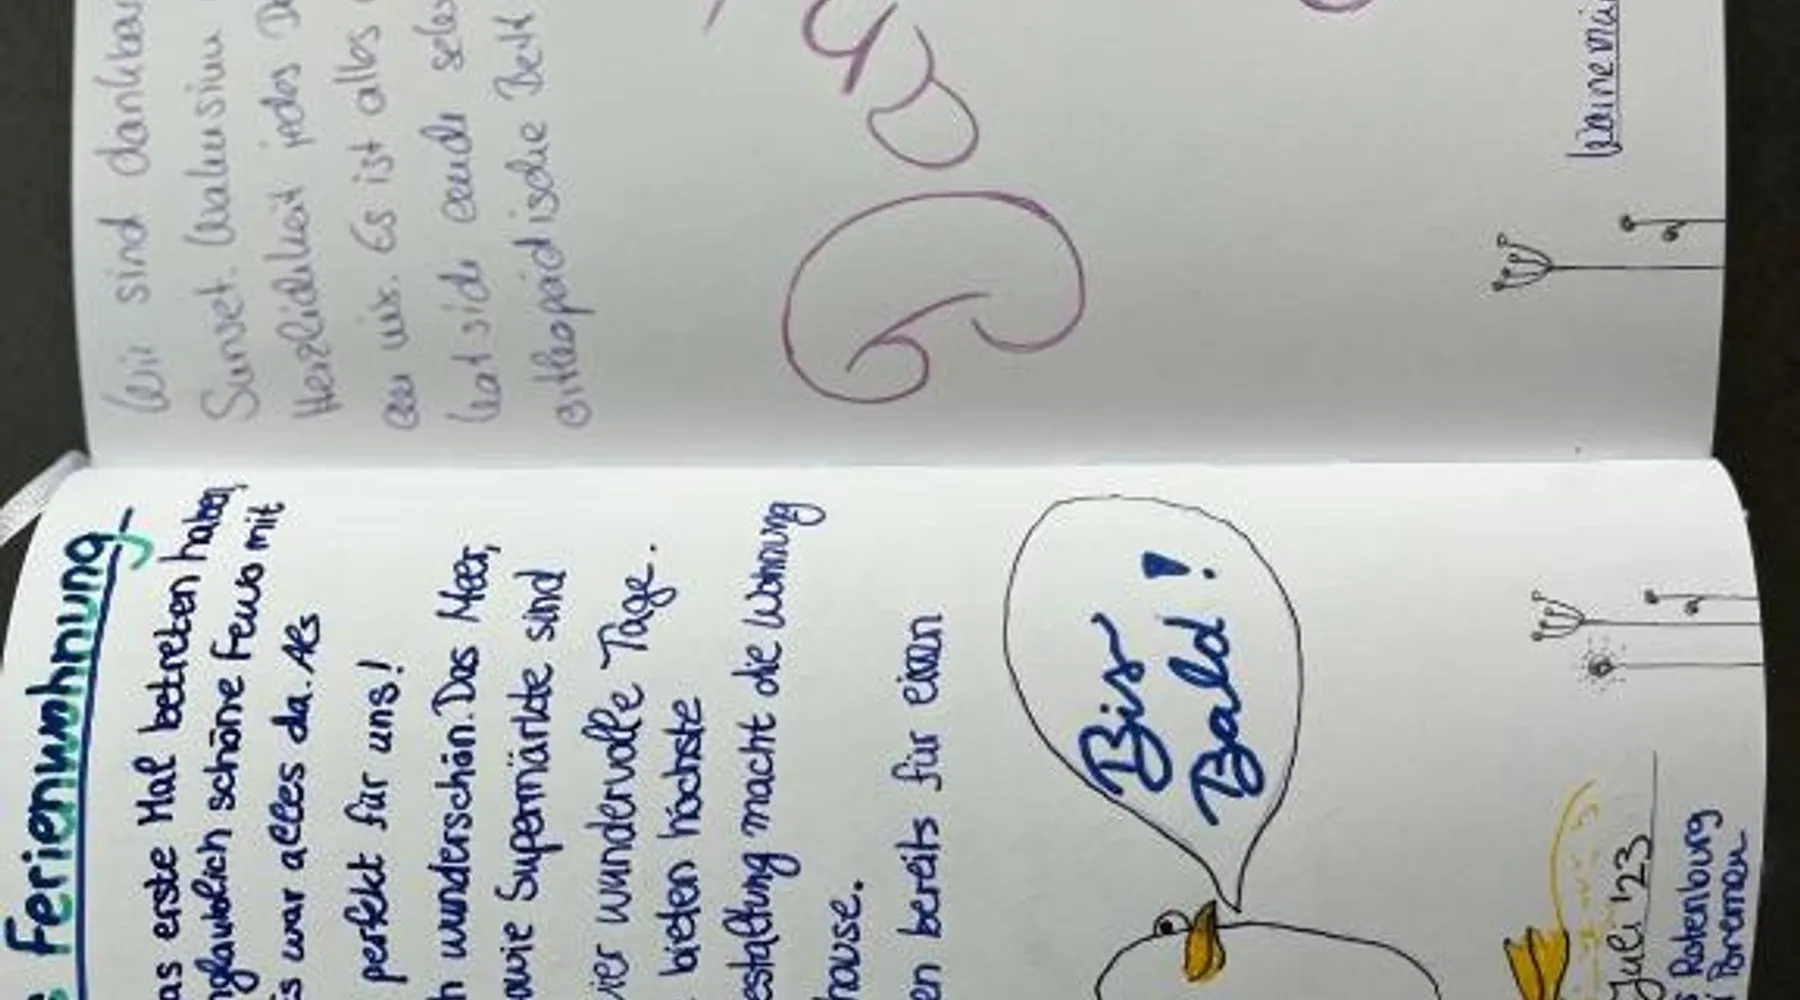 Ferienwohnung
as erste Mal betreten haben,
nglaublich schöne Fewo mit
s war alles da. Als
perfekt für uns!
h wunderschön. Das Meer,
owie Supermärkte sind
ier wundervolle Tage.
bieten höchste
estaltung macht die Wohnung
hause.
en bereits für einen
Bis
Bald!
Juli '23
Rotenburg
Bremen
Wir sind dankbar
Sunset.
Herzlichkeit jedes
wir. Es ist alles
hat sich
orthopädische Bett